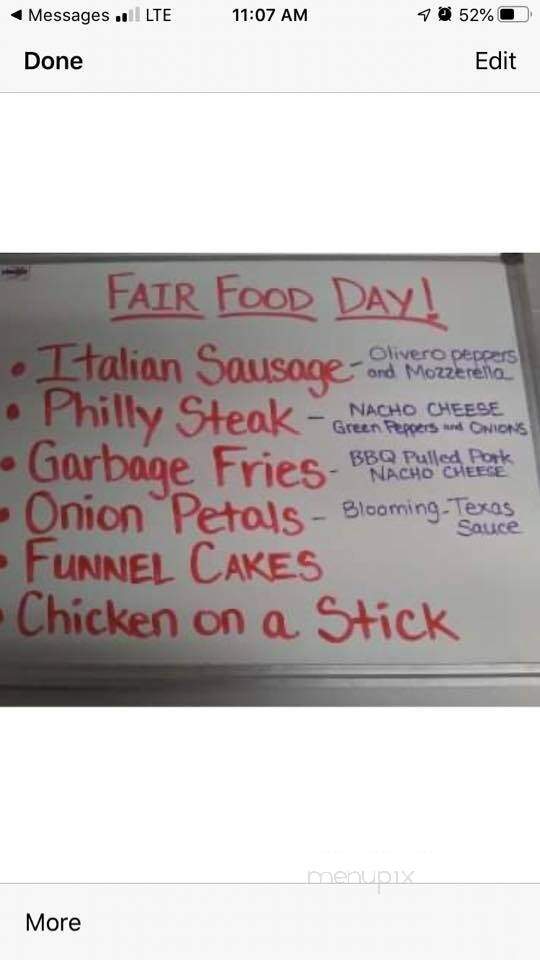 Messages LTE 11:07 AM 52%
Done Edit
FAIR FOOD DAY!
• Italian Sausage - Olivero peppers
and Mozzerella
• Philly Steak - NACHO CHEESE
Green Peppers and ONIONS
• Garbage Fries - BBQ Pulled Pork
NACHO CHEESE
• Onion Petals - Blooming-Texas
Sauce
• FUNNEL CAKES
• Chicken on a Stick
menupix
More